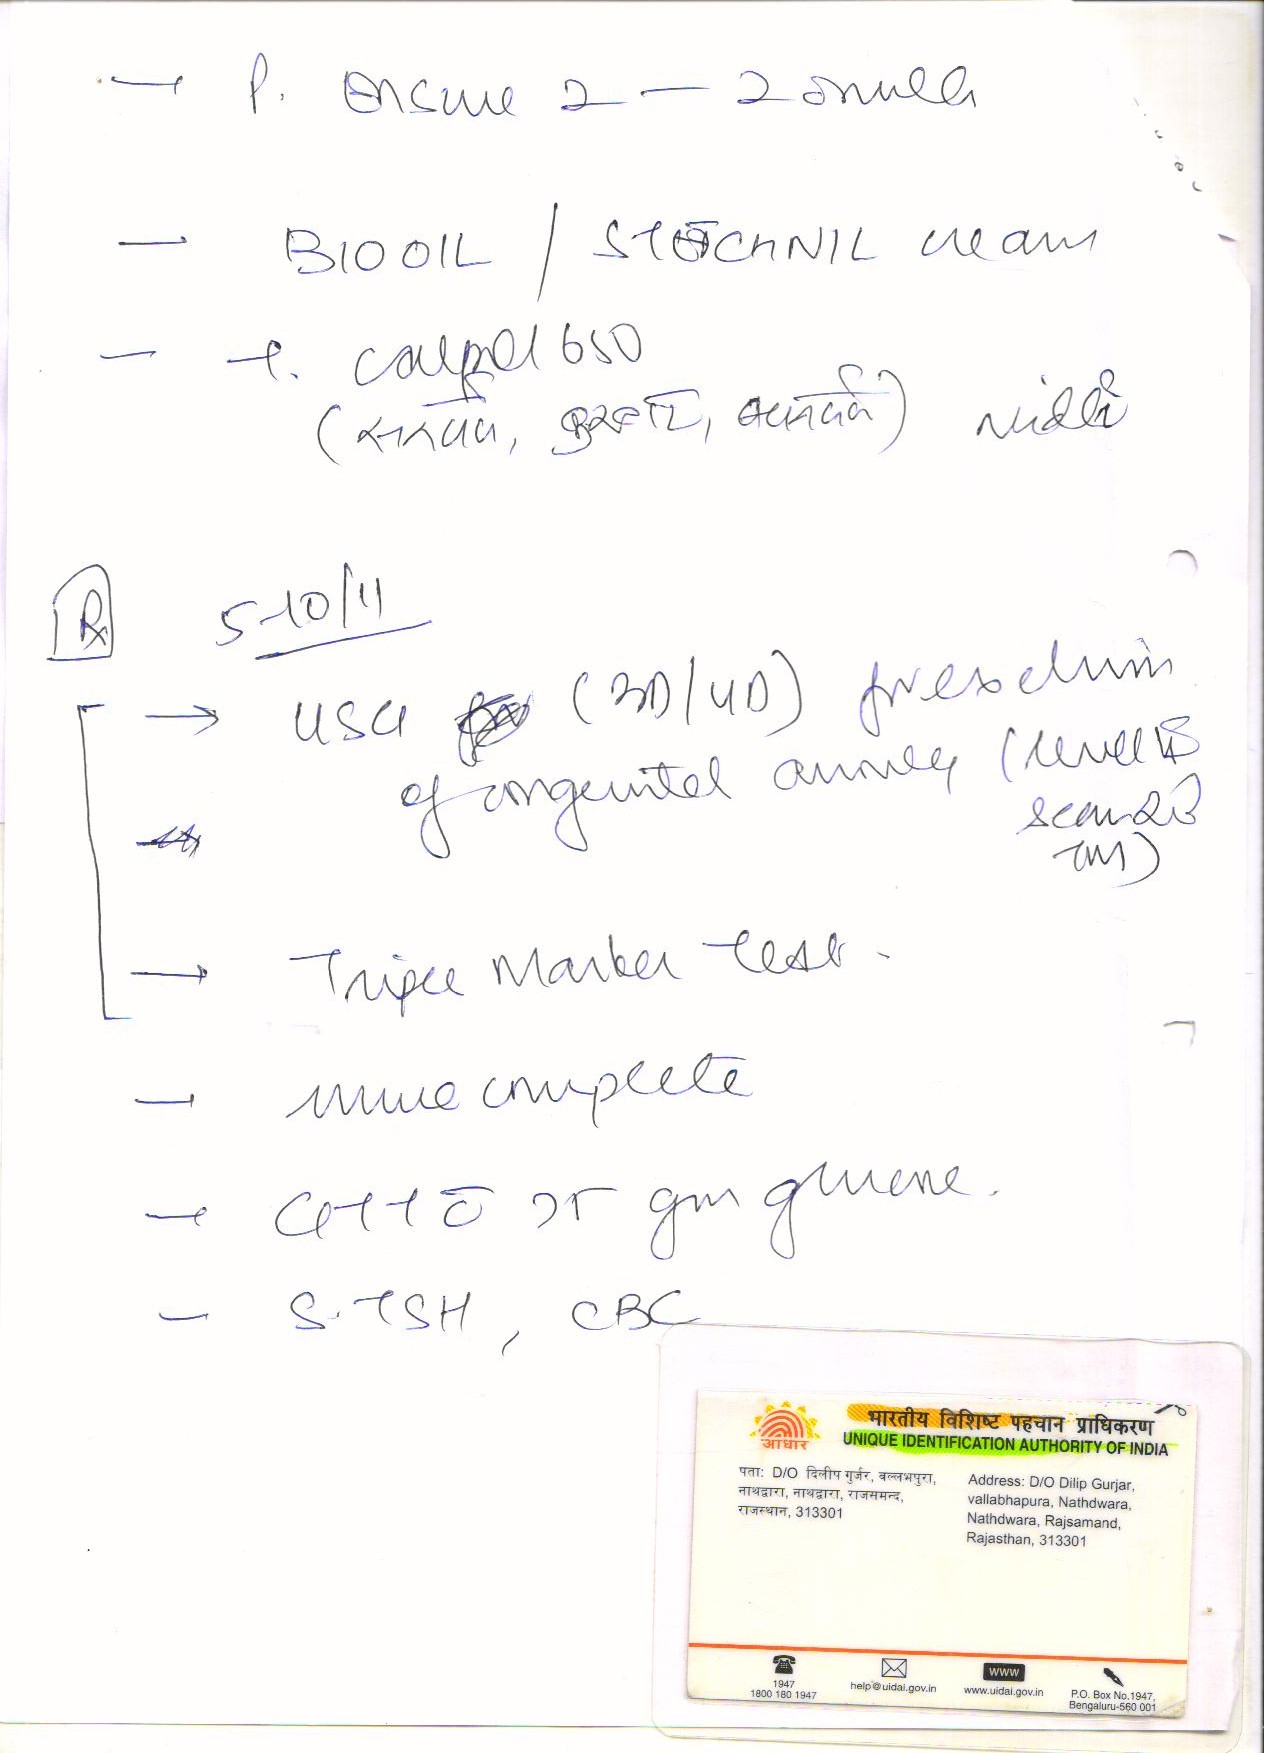 → P. Ensure 2 — 2 चम्मच
— BIO OIL / STRECHNIL cream
— t. Calpol 650
(सरदर्द, बुखार, बदनदर्द)
Rx 5-10/11
→ USG (3D/4D) for exclusion
of congenital anomaly (level II
scan
→ Triple Marker test.
— urine complete
→ GTT c̄ 75 gm glucose.
— S.TSH, CBC
आधार
भारतीय विशिष्ट पहचान प्राधिकरण
UNIQUE IDENTIFICATION AUTHORITY OF INDIA
पता: D/O दिलीप गुर्जर, वल्लभपुरा,
नाथद्वारा, नाथद्वारा, राजसमन्द,
राजस्थान, 313301
Address: D/O Dilip Gurjar,
vallabhapura, Nathdwara,
Nathdwara, Rajsamand,
Rajasthan, 313301
1947
1800 180 1947
help@uidai.gov.in
WWW
www.uidai.gov.in
P.O. Box No.1947,
Bengaluru-560 001